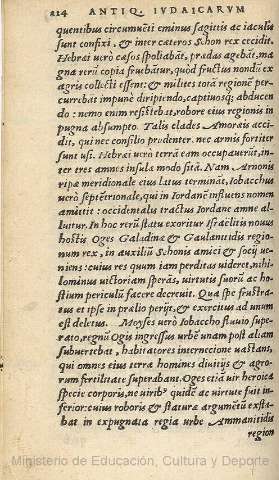 224 ANTIQ. IVDAICARVM
quentibus circumuēti eminus sagittis ac iaculis
sunt confixi, & inter cæteros Schon rex cecidit.
Hebræi verò cæsos spoliabāt, prædas agebāt, ma
gna rerū copia fruebātur, quòd fructus nondū ex
agris collecti essent: & milites totā regionē per-
currebāt impunè diripiendo, captiuosq; abducen
do: nemo enim resistebat, robore eius regionis in
pugna absumpto. Talis clades Amoræis acci-
dit, qui nec consilio prudenter, nec armis fortiter
sunt vsi. Hebræi verò terrā eam occupauerūt, in-
ter tres amnes insulæ modo sitā. Nam Arnonis
ripæ meridionale eius latus termināt, Iobacchus
verò septētrionale, qui in Iordanē influens nomen
amittit: occidentalis tractus Iordane amne al-
luitur. In hoc rerū statu exoritur Israëlitis nouus
hostis Oges Galadinæ & Gaulanitidis regio-
num rex, in auxiliū Schonis amici & socij ve-
niens: cuius res quum iam perditas videret, nihi-
lominus victoriam sperās, virtutis suorū ac ho-
stium periculū facere decreuit. Qua spe frustra-
tus et ipse in prælio perijt, & exercitus ad unum
est deletus. Moyses verò Iobaccho fluuio supe-
rato, regnū Ogis ingressus vrbē vnam post aliam
subuertebat, habitatores internecione vastans,
qui omnes eius terræ homines diuitijs & agro-
rum fertilitate superabant. Oges etiā vir heroica
specie corporis, ne virib° quidē ac virtute fuit in-
ferior: cuius roboris & staturæ argumētū exsta-
bat in expugnata regia vrbe Ammanitidis
region
Ministerio de Educación, Cultura y Deporte